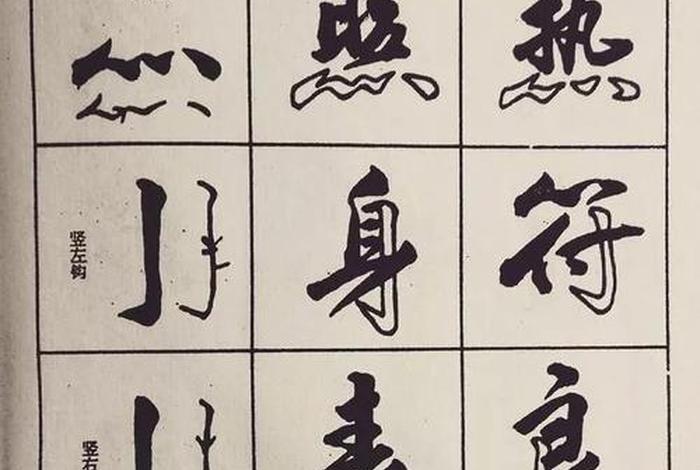 照 热
竖左钩 身 符
竖右 良